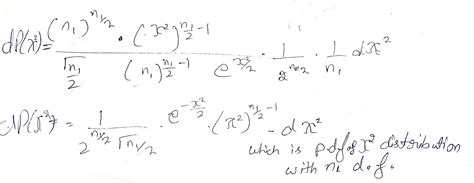 dP(χ²) = (n₁)^{n₁/2} / Γn₁/2 · (χ²)^{n₁/2 -1} / (n₁)^{n₁/2 -1} e^{χ²/2} · 1/2^{n₁/2} · 1/n₁ dχ²
dP(χ²) = 1 / 2^{n₁/2} Γn₁/2 · e^{-χ²/2} · (χ²)^{n₁/2 -1} - dχ²
which is pdf of χ² distribution
with n₁ d.f.